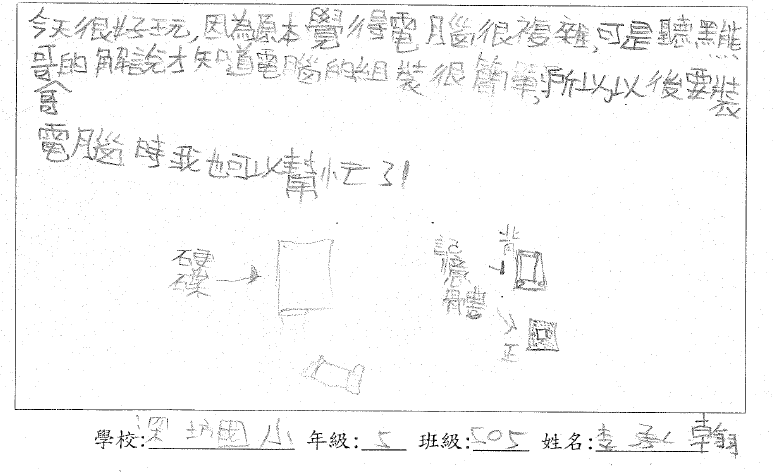 今天很好玩,因為原本覺得電腦很複雜,可是聽黑熊
哥哥的解說才知道電腦的組裝很簡單,所以以後要裝
電腦時我也可以幫忙了!
硬碟
記憶體
背
正
學校:深坑國小 年級:5 班級:505 姓名:李承翰